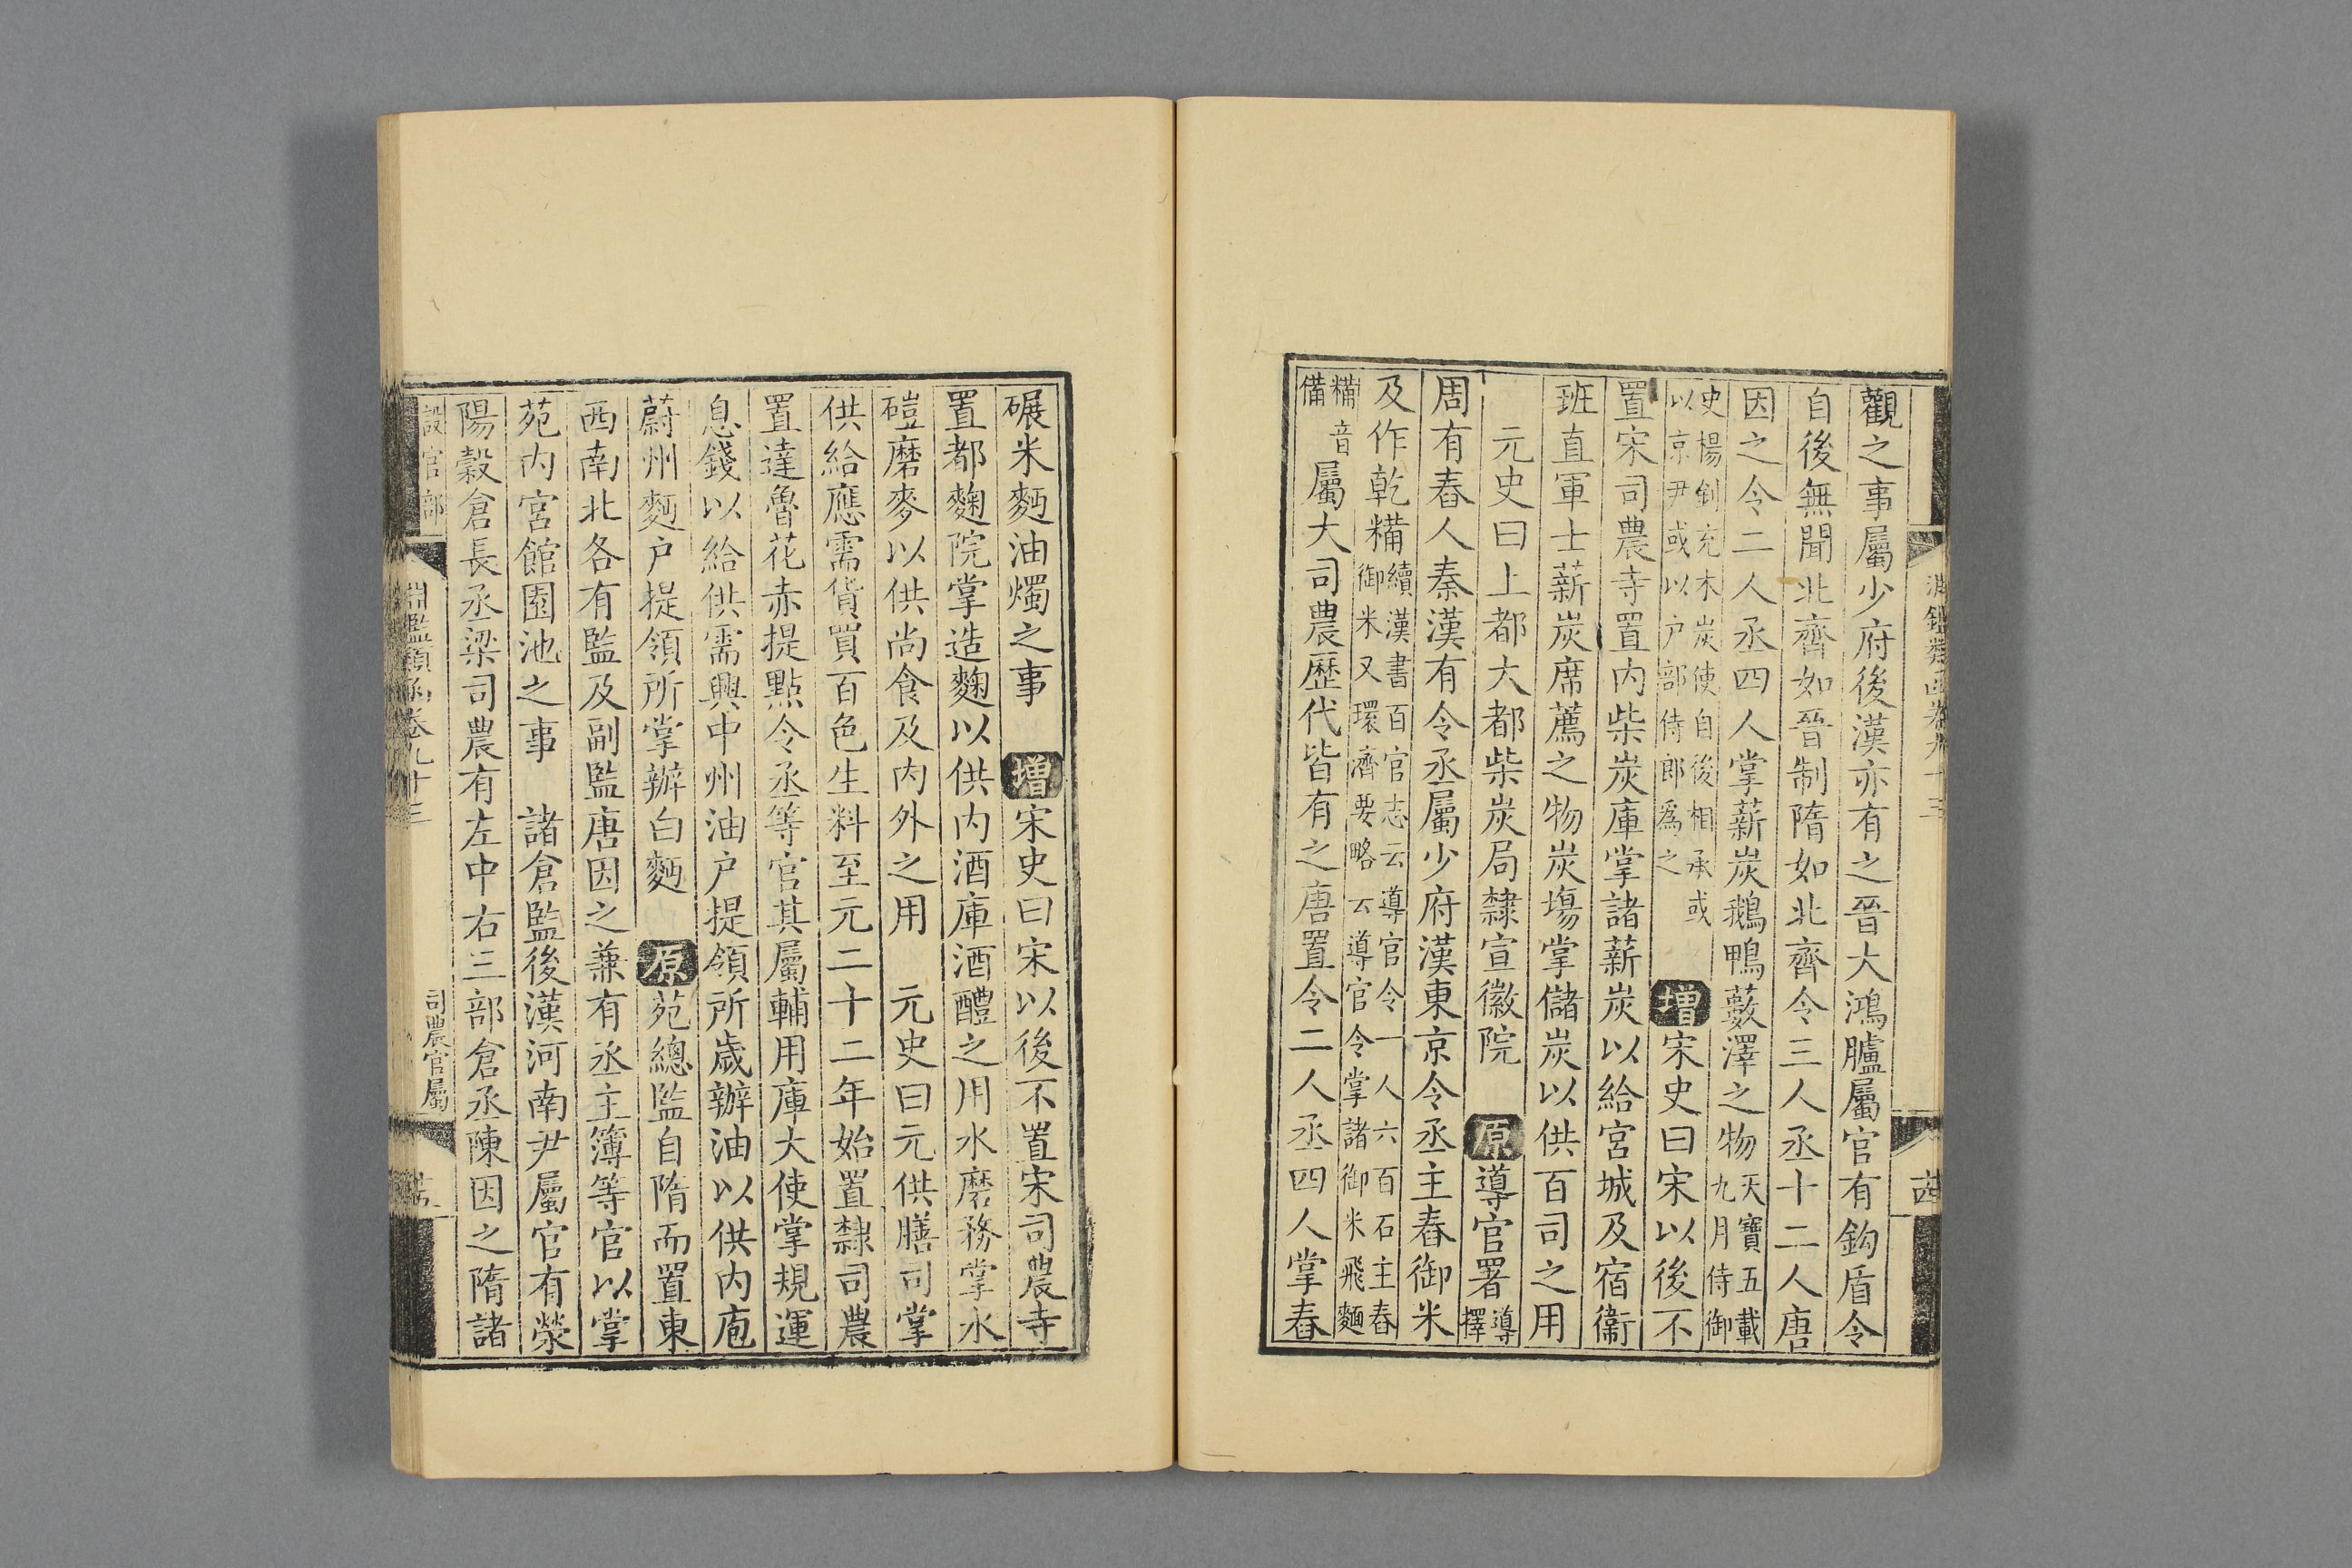 觀之事屬少府後漢亦有之晉大鴻臚屬官有鈎盾令
自後無聞北齊如晉制隋如北齊令三人丞十二人唐
因之令二人丞四人掌薪炭鵝鴨藪澤之物天寶五載九月侍御
史楊釗充木炭使自後相承或以京尹或以户部侍郎爲之 增宋史曰宋以後不
置宋司農寺置内柴炭庫掌諸薪炭以給宮城及宿衞
班直軍士薪炭席薦之物炭塲掌儲炭以供百司之用
元史曰上都大都柴炭局隸宣徽院 原導官署導擇
周有舂人秦漢有令丞屬少府漢東京令丞主舂御米
及作乾糒續漢書百官志云導官令一人六百石主舂御米又環濟要略云導官令掌諸御米飛麵
糒音備屬大司農歷代皆有之唐置令二人丞四人掌舂
碾米麪油燭之事 增宋史曰宋以後不置宋司農寺
置都麴院掌造麴以供内酒庫酒醴之用水磨務掌水
磑磨麥以供尚食及内外之用 元史曰元供膳司掌
供給應需貨買百色生料至元二十二年始置隸司農
置達魯花赤提點令丞等官其屬輔用庫大使掌規運
息錢以給供需興中州油户提領所歲辦油以供内庖
蔚州麪户提領所掌辦白麪 原苑總監自隋而置東
西南北各有監及副監唐因之兼有丞主簿等官以掌
苑内宮館園池之事 諸倉監後漢河南尹屬官有滎
陽穀倉長丞梁司農有左中右三部倉丞陳因之隋諸
設官部
淵鑑類函卷九十三
司農官屬